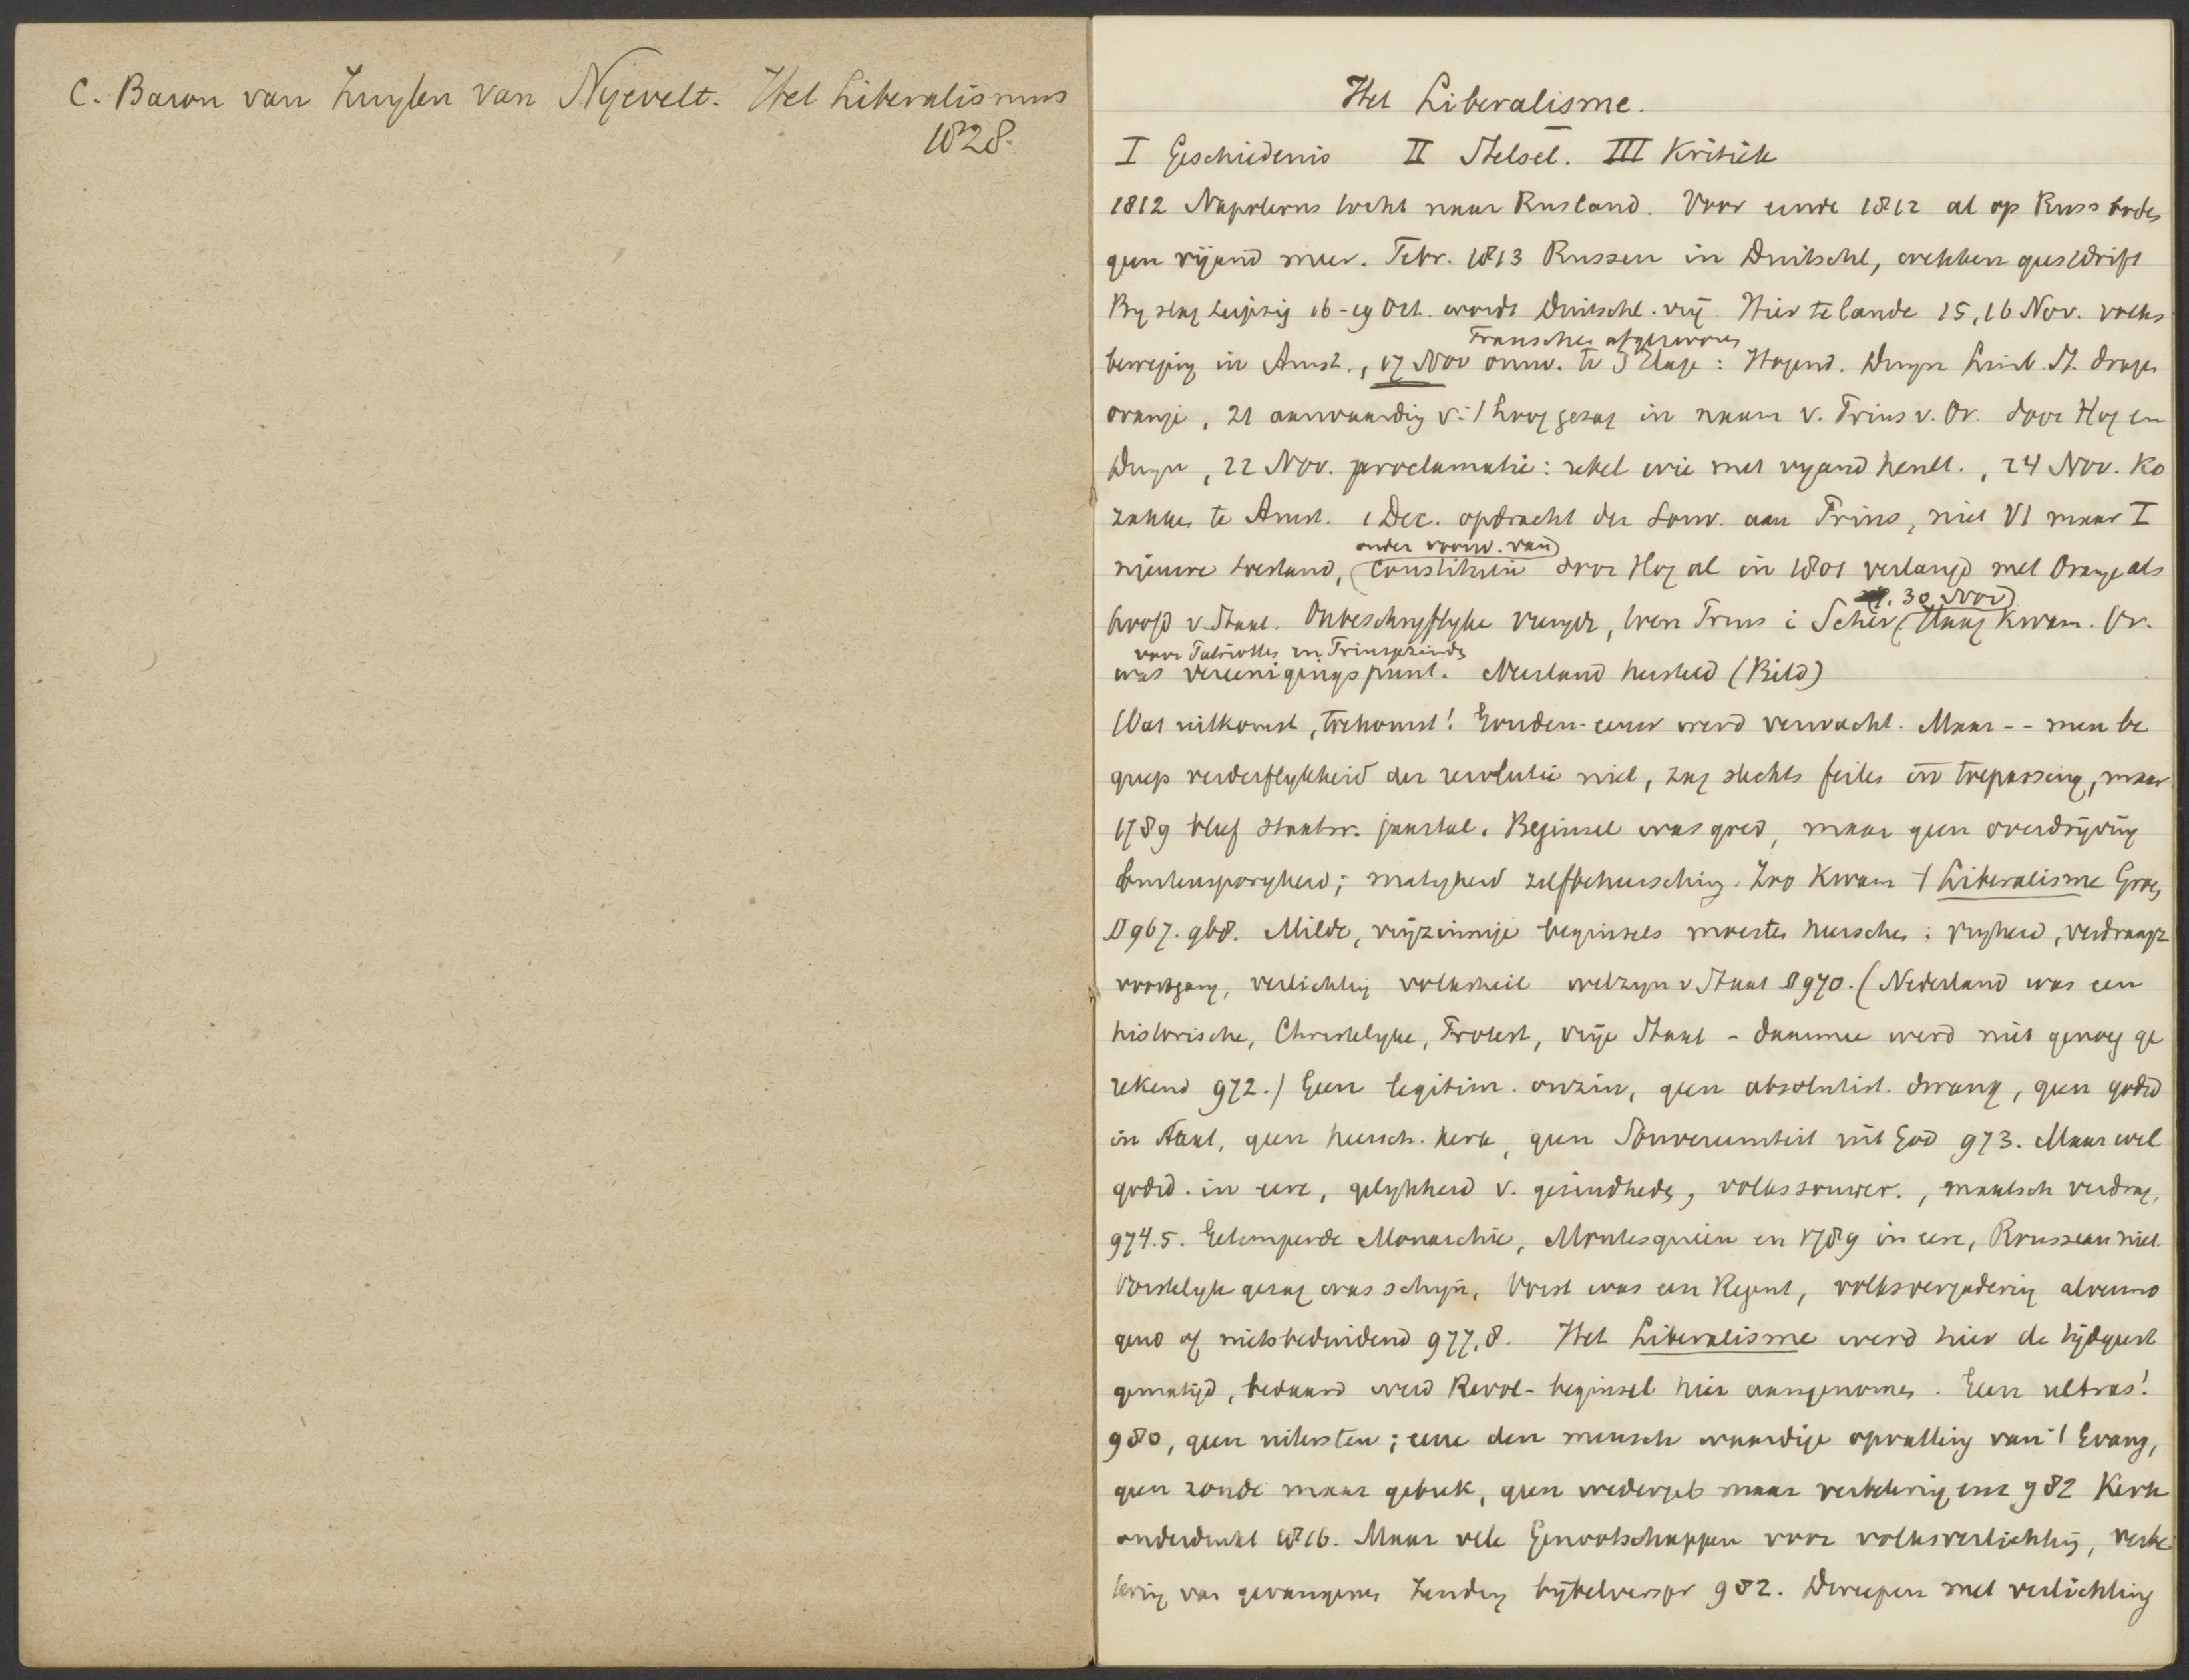 C. Baron van Zuylen van Nyevelt. Het Liberalismus
1828.
Het Liberalisme.
I Geschiedenis II Stelsel. III Kritiek
1812 Napoleons tocht naar Rusland. Voor einde 1812 al op Russ bodem
geen vijand meer. Febr. 1813 Russen in Duitschl, wekken geestdrift
By slag Leipzig 16-19 Oct. wordt Duitschl. vrij Hier te lande 15, 16 Nov. volks
Fransches afgezworen
beweging in Amst., 17 Nov omw. te 's Hage: Hogend. Duyn Limb. St. dragen
oranje, 21 aanvaarding v. 't hoog gezag in naam v. Prins v. Or. door Hog en
Duyn, 22 Nov. proclamatie: rebel wie met vyand heult., 24 Nov. Ko
zakken te Amst. 1 Dec. opdracht der Souv. aan Prins, niet VI maar I
onder voorw. van
nieuwe toestand, (constitutie door Hog al in 1801 verlangd met Oranje als
30 Nov)
hoofd v. Staat. Onbeschryflyke vreugde, toen Prins i Schev (Haag kwam. Or.
voor Patriotten en Prinsgezinden
was vereenigingspunt. Neerland hersteld (Bild)
Wat uitkomst, toekomst! Gouden-eeuw werd verwacht. Maar -- men be
greep verderflykheid der revolutie niet, zag slechts feiten in toepassing, maar
1789 bleef staatsr. jaartal. Beginsel was goed, maar geen overdrijving
buitensporigheid; matigheid zelfbeheersching. Zoo kwam 't Liberalisme Groen
D 967. 968. Milde, vrijzinnige beginsels moesten heerschen: vryheid, verdraagz
vooruitgang, verlichting volksheil welzyn v Staat D 970. (Nederland was een
historische, Christelyke, Protest, vrije Staat - daarmee werd niet genoeg ge
rekend 972.) Geen legitim. onzin, geen absolutist. dwang, geen godsd
in Staat, geen heersch. kerk, geen Souvereiniteit uit God 973. Maar wel
godsd. in eere, gelykheid v. gezindheden, volkssouver., maatsch verdrag,
974.5. Getemperde Monarchie, Montesquieu en 1789 in eere, Rousseau niet.
Vorstelyk gezag was schijn, Vorst was een Regent, volksvergadering alvermo
gend of nietsbeduidend 977.8. Het Liberalisme werd hier de tijdgeest
gematigd, bedaard werd Revol-beginsel hier aangenomen. Geen ultras!
980, geen uitersten; eene den mensch waardige opvatting van 't Evang,
geen zonde maar gebrek, geen wedergeb maar verbetering enz 982 Kerk
onderdrukt 1816. Maar vele Genootschappen voor volksverlichting, verbe
tering van gevangenen Zending bijbelverspr 982. Dweepen met verlichting